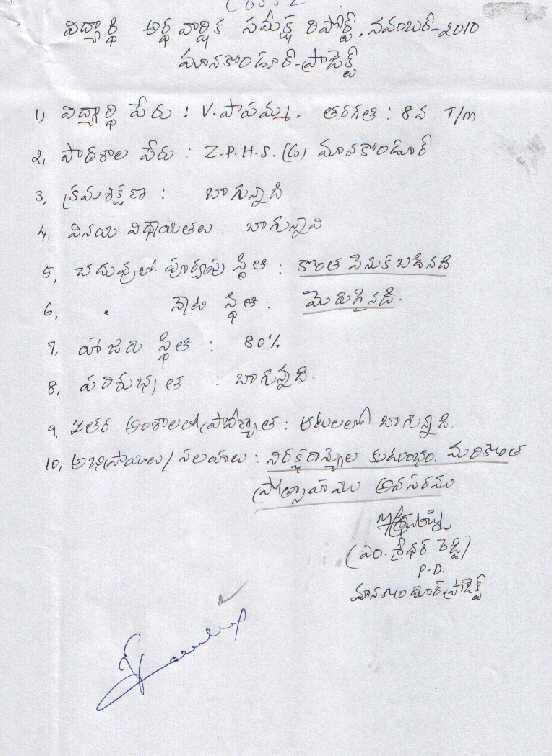 విద్యార్థి అర్థ వార్షిక సమీక్ష రిపోర్ట్, నవంబర్-2010
మానకొండూర్-ప్రాజెక్ట్
1) విద్యార్థి పేరు : V. పాపమ్మ. తరగతి : 8వ T/m
2, పాఠశాల పేరు : Z.P.H.S. (G) మానకొండూర్
3, క్రమశిక్షణ : బాగున్నది
4 వినయ విధేయతలు బాగున్నవి
5, చదువులో పూర్వపు స్థితి : కొంత వెనుకబడినది
6, " నేటి స్థితి . మెరుగైనది.
7. హాజరు స్థితి : 80%
8, పరిశుభ్రత . బాగున్నది.
9, ఇతర అంశాలలో ప్రావీణ్యత : ఆటలలో బాగున్నది.
10, అభిప్రాయాలు/ సలహాలు : నిరక్షరాస్యుల కుటుంబం. మరికొంత
ప్రోత్సాహము అవసరము
(ఎం. శ్రీధర్ రెడ్డి)
P.D.
మానకొండూర్ ప్రాజెక్ట్